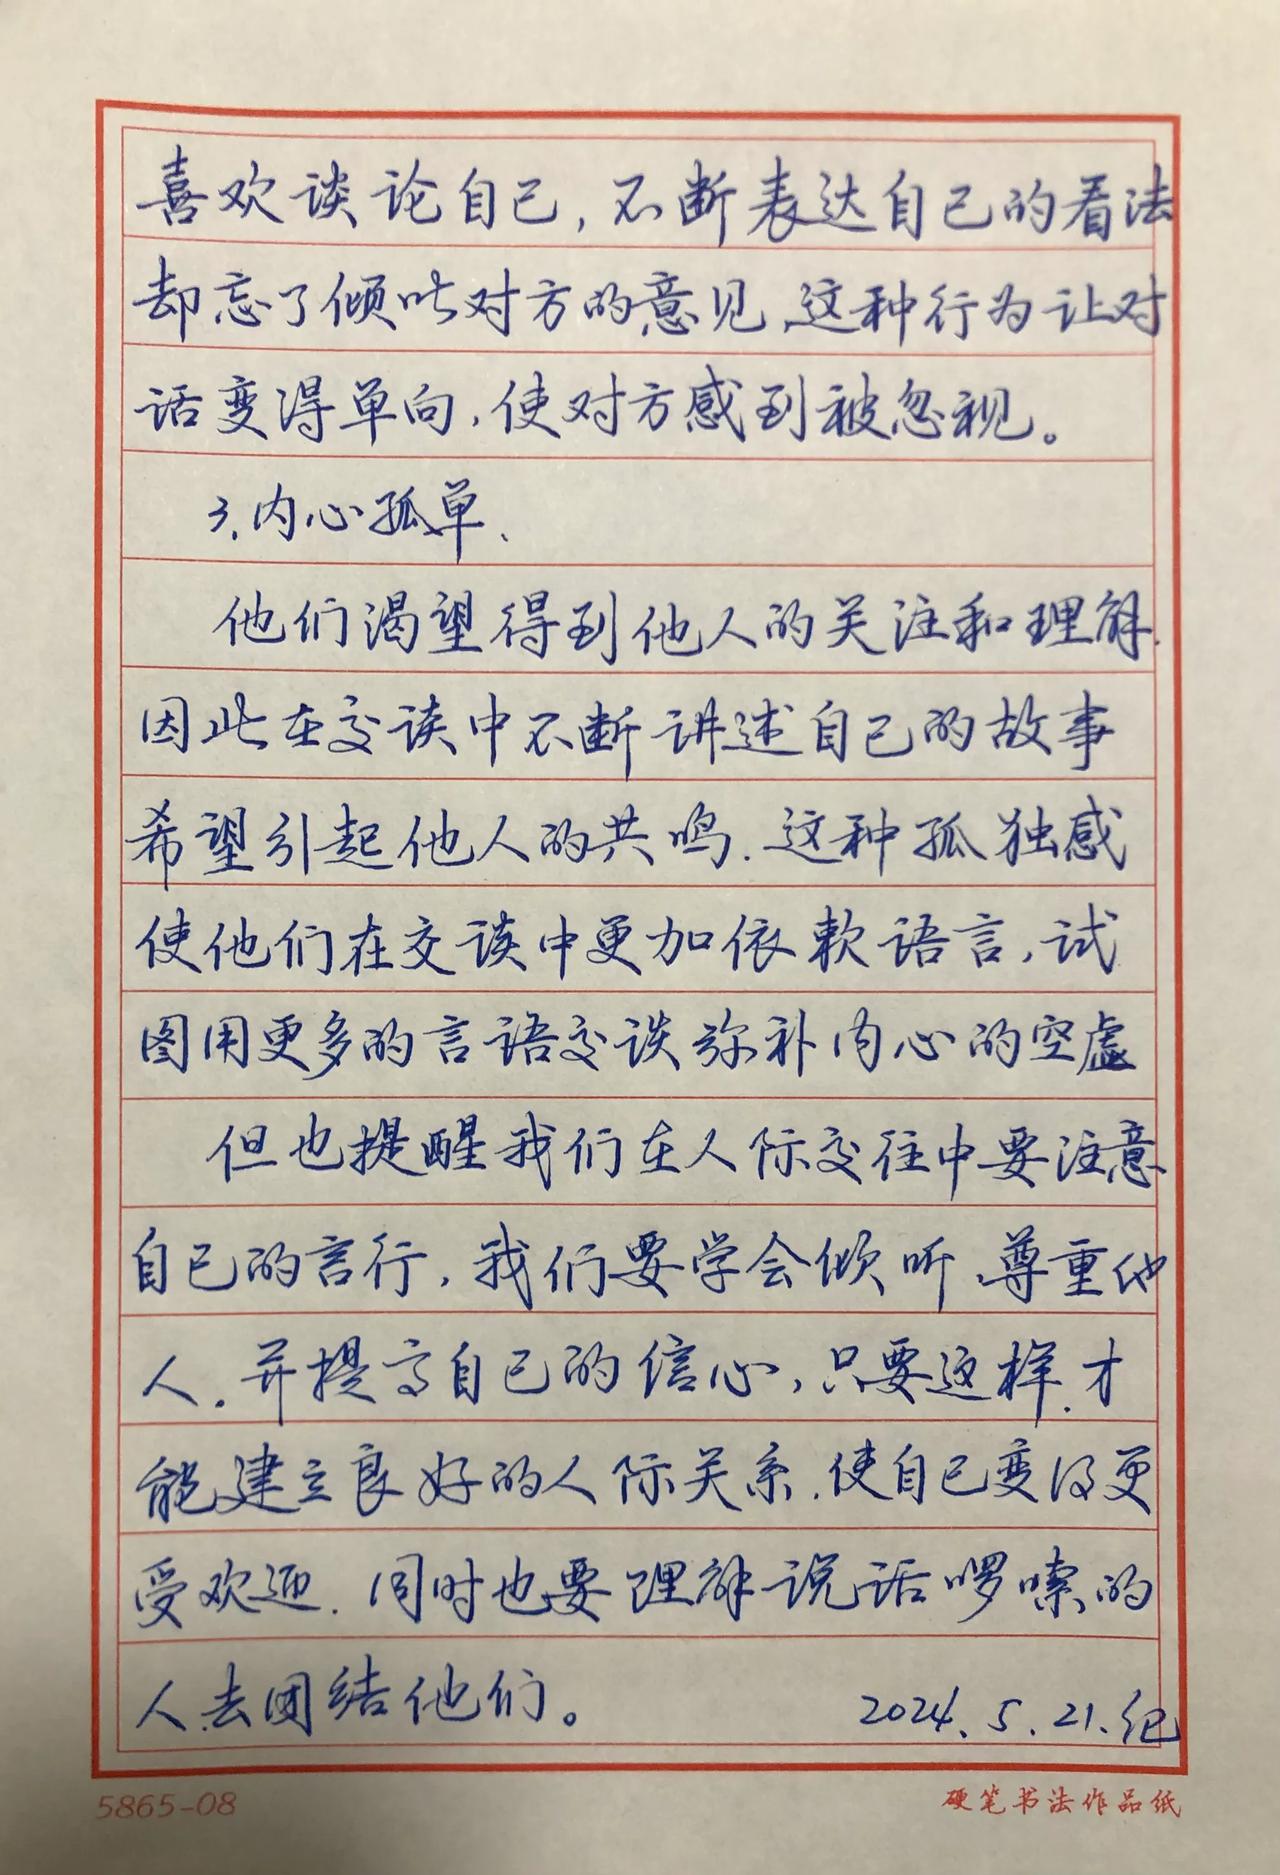 喜欢谈论自己，不断表达自己的看法
却忘了倾吐对方的意见，这种行为让对
话变得单向，使对方感到被忽视。
3.内心孤单、
他们渴望得到他人的关注和理解.
因此在交谈中不断讲述自己的故事
希望引起他人的共鸣.这种孤独感
使他们在交谈中更加依软语言，试
图用更多的言语交谈弥补内心的空虚
但也提醒我们在人际交往中要注意
自己的言行，我们要学会倾听、尊重他
人.并提高自己的信心，只要这样.才
能建立良好的人际关系.使自己变得更
受欢迎.同时也要理解说话啰嗦的
人.去团结他们。
2024.5.21.纪
5865-08
硬笔书法作品纸